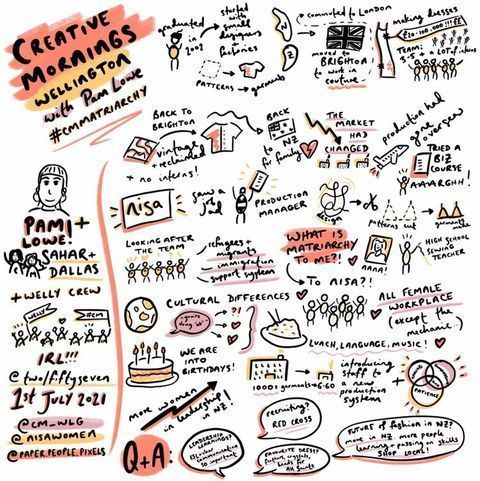 CREATIVE
MORNINGS
WELLINGTON
with PAM LOWE
#CMMATRIARCHY
graduated
in 2002
started
with
small
designers
+
factories
PATTERNS → garments
+ commuted to LONDON
moved
BRIGHTON
to work in
couture
making dresses
£20-100,000!!! ££
TEAM:
3-5 + LOT of interns
BACK TO
BRIGHTON
vintage
+ reclaimed
+ no interns!
BACK
to NZ
for family
THE
MARKET
HAD
CHANGED
production had
gone overseas
TRIED A
BIZ
COURSE
AAAARGH!
nisa
saw a
job
PRODUCTION
MANAGER
design
patterns cut
garments
made
PAMI +
LOWE!
SAHAR +
DALLAS
+ WELLY CREW
WELLY
#CM
IRL!!!
@twofiftyseven
1st JULY 2021
@CM_WLG
@NISAWOMEN
@PAPER.PEOPLE.PIXELS
LOOKING AFTER
THE TEAM
refugees +
migrants
immigration
support system
WHAT IS
MATRIARCHY
TO ME?!
NANA!
HIGH SCHOOL
SEWING
TEACHER
TO NISA?!
CULTURAL DIFFERENCES
ALL FEMALE
WORKPLACE
(except the
mechanic...
WE ARE
INTO
BIRTHDAYS!
LUNCH, LANGUAGE, MUSIC!
more women
in leadership
in NZ!
1000s garments → 6-60
introducing
staff to
a new
production
system
Q+A:
LEADERSHIP
LEARNINGS?
communication
so important
recruiting?
RED CROSS
FAVOURITE DRESS?
FUTURE of fashion in NZ?
more in NZ, more people
learning + passing on skills
SHOP LOCAL!